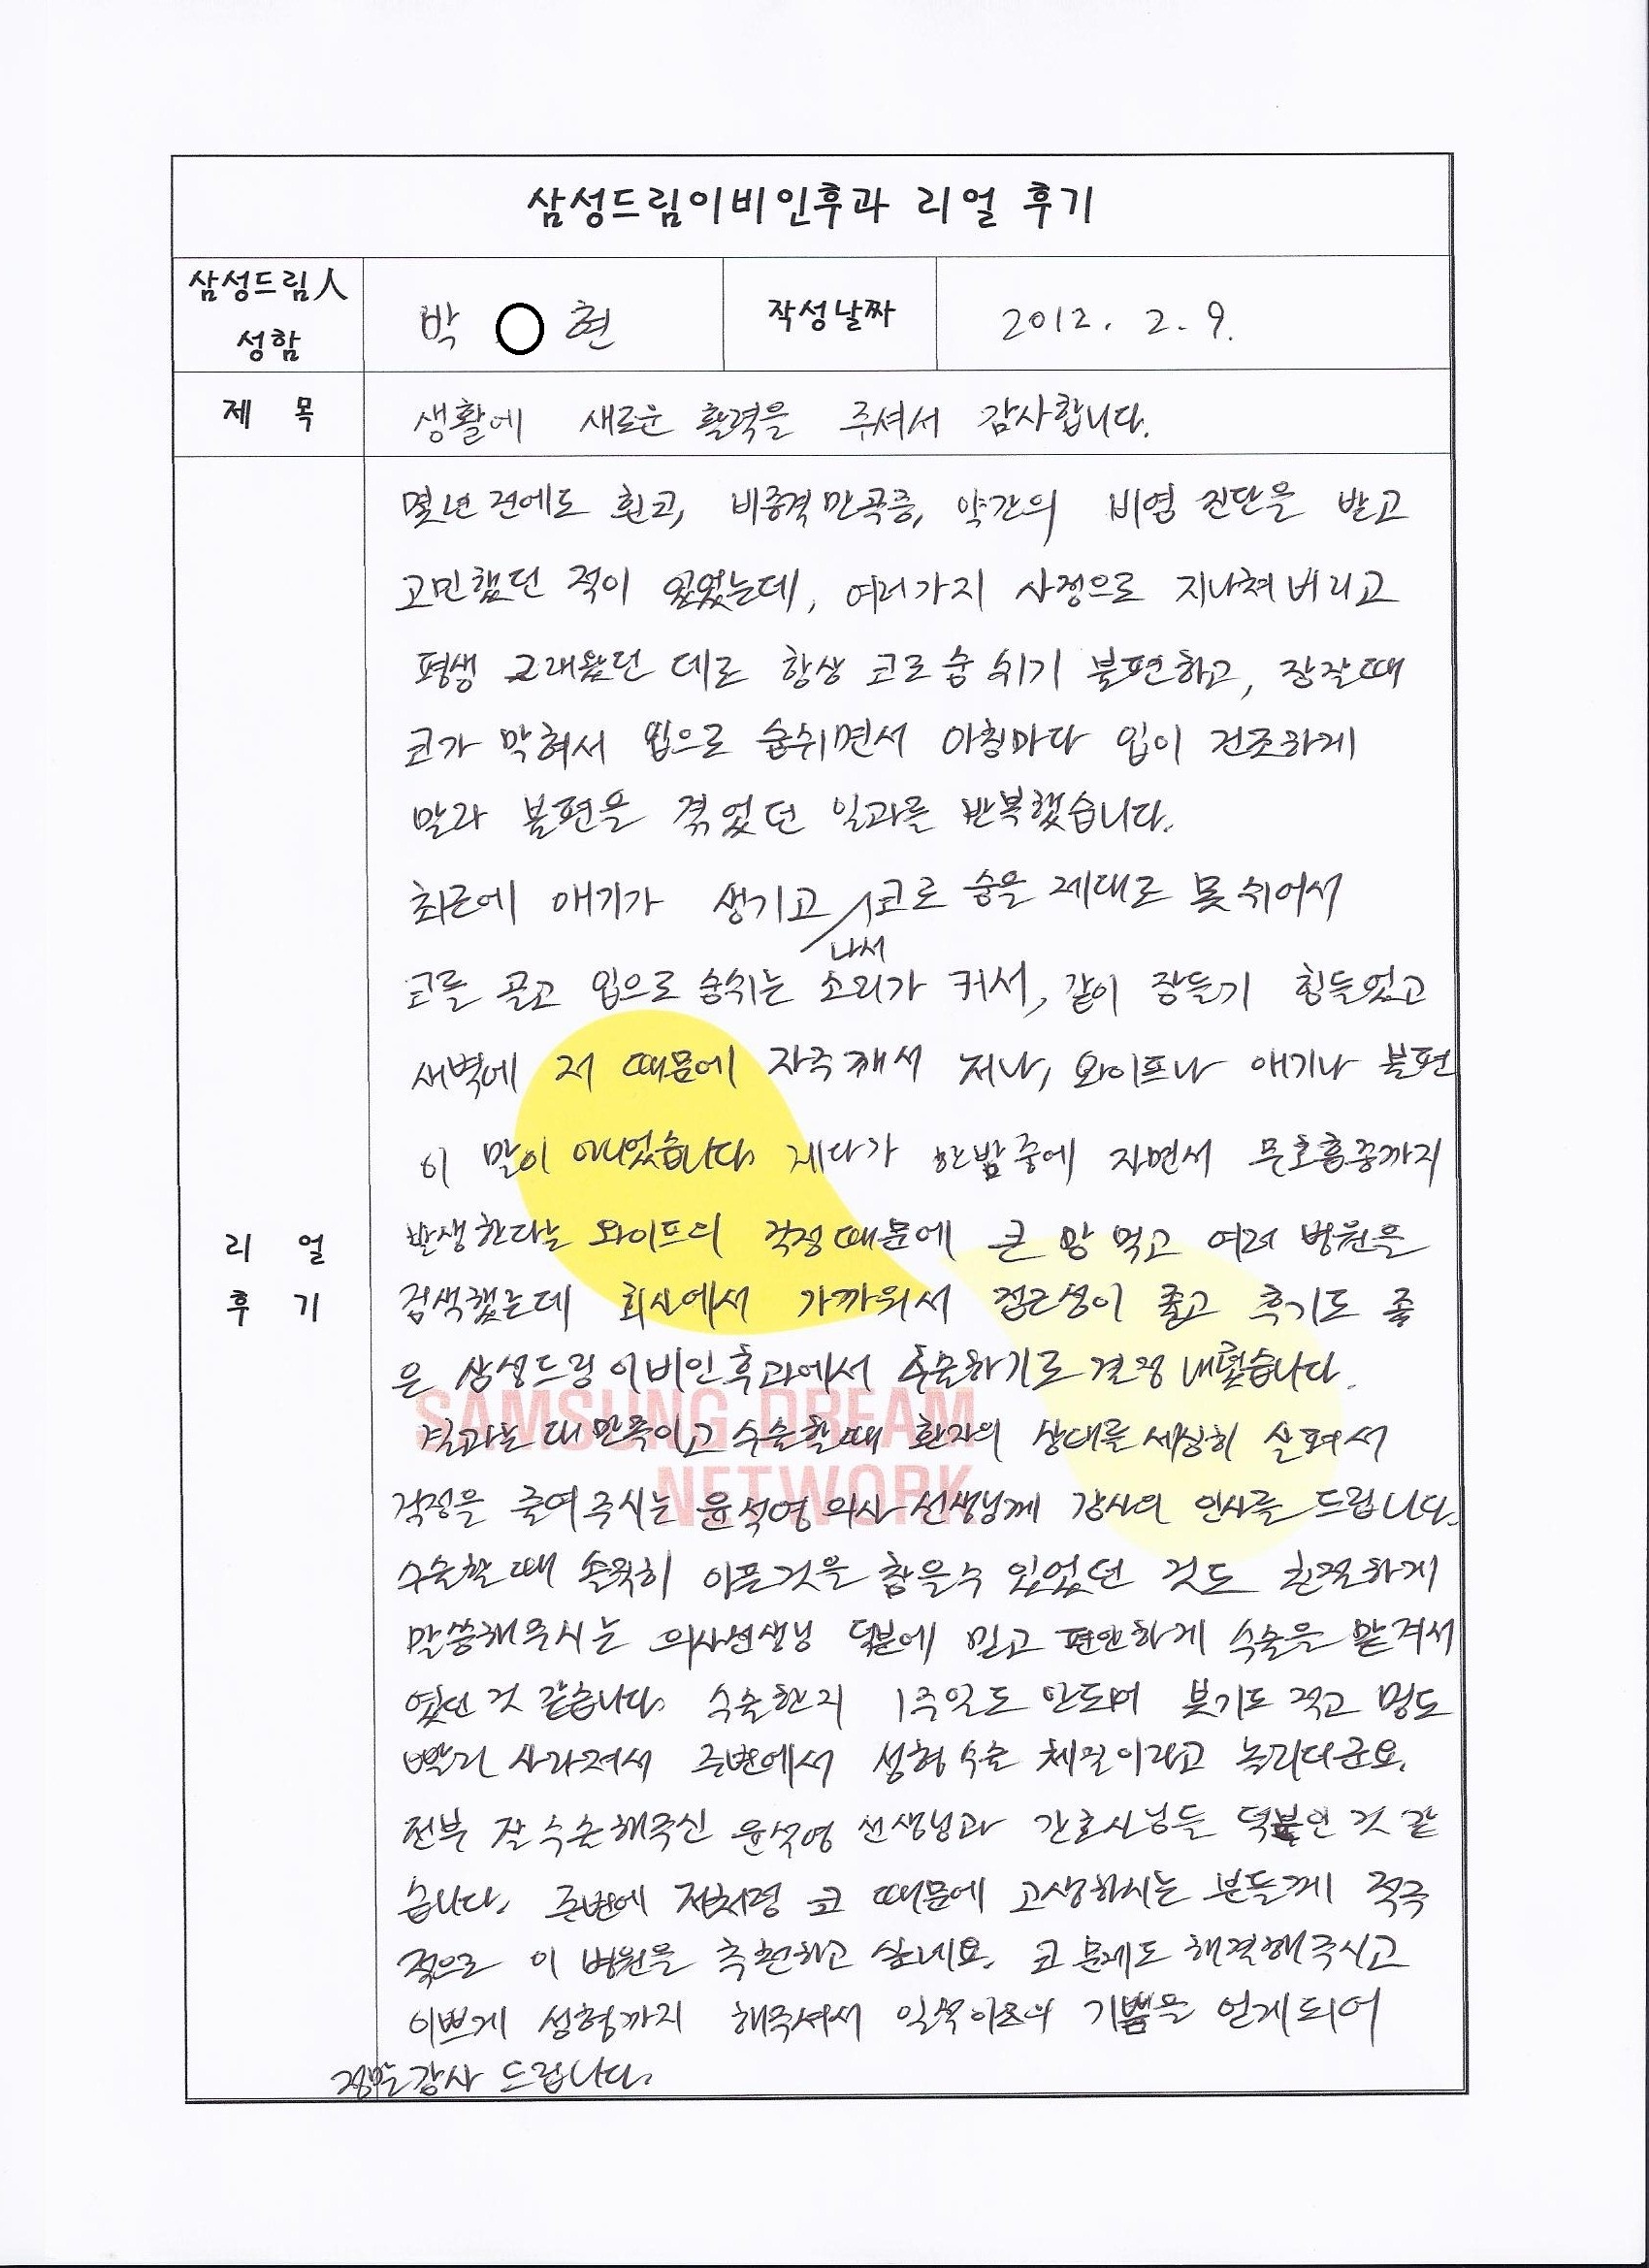 삼성드림이비인후과 리얼 후기
삼성드림人 성함
박 ○ 현
작성날짜
2012. 2. 9.
제 목
생활에 새로운 활력을 주셔서 감사합니다.
몇년 전에도 휜코, 비중격만곡증, 약간의 비염 진단을 받고
고민했던 적이 있었는데, 여러가지 사정으로 지나쳐버리고
평생 그래왔던 데로 항상 코로 숨 쉬기 불편하고, 잠잘때
코가 막혀서 입으로 숨쉬면서 아침마다 입이 건조하게
말라 불편을 겪었던 일과를 반복했습니다.
최근에 애기가 생기고 나서 코로 숨을 제대로 못 쉬어서
코를 골고 입으로 숨쉬는 소리가 커서, 같이 잠들기 힘들었고
새벽에 저 때문에 자주 깨서 저나, 와이프나 애기나 불편
이 많이 있었습니다. 게다가 한밤중에 자면서 무호흡증까지
발생한다는 와이프의 걱정때문에 큰 맘 먹고 여러 병원을
검색했는데 회사에서 가까워서 접근성이 좋고 후기도 좋
은 삼성드림이비인후과에서 수술하기로 결정 내렸습니다.
결과는 대만족이고 수술할때 환자의 상태를 세심히 살펴서
걱정을 줄여주시는 윤석영 의사 선생님께 감사의 인사를 드립니다.
수술할 때 솔직히 아픈것을 참을수 있었던 것도 친절하게
말씀해주시는 의사선생님 덕분에 믿고 편안하게 수술을 맡겨서
였던 것 같습니다. 수술한지 1주일도 안되어 붓기도 적고 멍도
빨리 사라져서 주변에서 성형수술 체질이라고 놀리더군요.
전부 잘 수술해주신 윤석영 선생님과 간호사님들 덕분인 것 같
습니다. 주변에 저처럼 코 때문에 고생하시는 분들께 적극
적으로 이 병원을 추천하고 싶네요. 코 문제도 해결해주시고
이쁘게 성형까지 해주셔서 일석이조의 기쁨을 얻게되어
정말 감사 드립니다.
리 얼
후 기
SAMSUNG DREAM
NETWORK